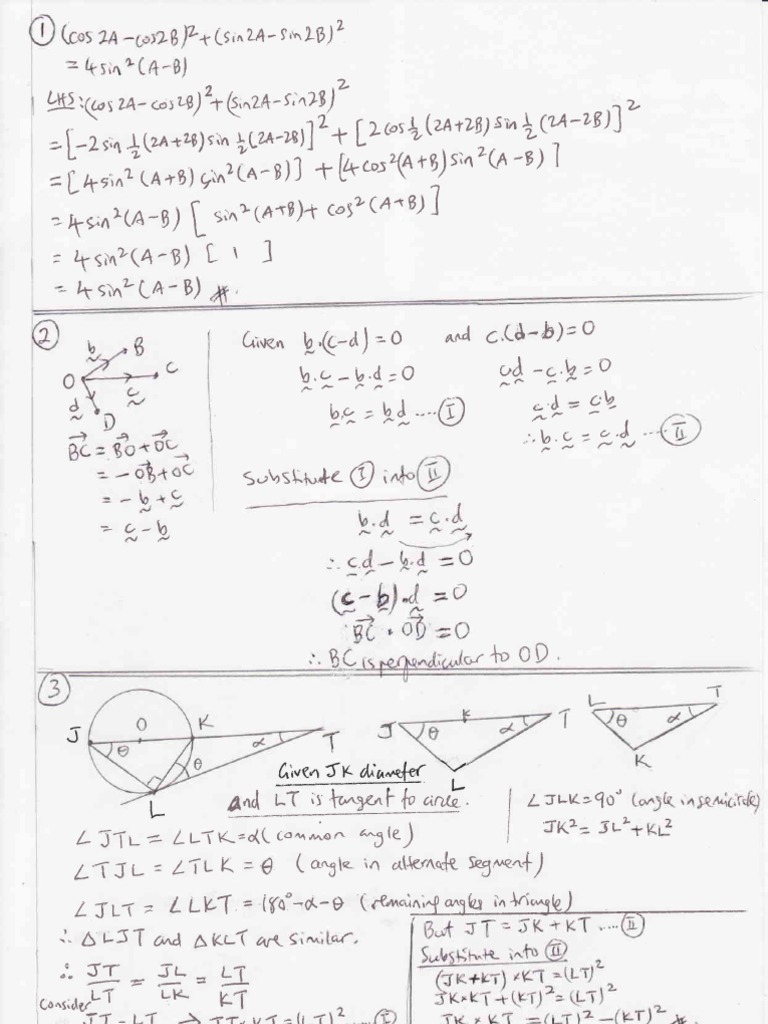 1 (cos 2A - cos2B)² + (sin2A - sin2B)²
= 4sin²(A-B)
LHS: (cos2A - cos2B)² + (sin2A - sin2B)²
= [-2sin ½(2A+2B) sin ½(2A-2B)]² + [2cos½(2A+2B) sin ½(2A-2B)]²
= [4sin²(A+B) sin²(A-B)] + [4cos²(A+B) sin²(A-B)]
= 4sin²(A-B) [sin²(A+B) + cos²(A+B)]
= 4sin²(A-B) [ 1 ]
= 4sin²(A-B) #.
2
b B
O C
c
d D
BC = BO + OC
= -OB + OC
= -b + c
= c - b
Given b·(c-d) = 0 and c·(d-b) = 0
b·c - b·d = 0 cd - c·b = 0
b·c = b·d ....I c·d = c·b
∴ b·c = c·d ....II
Substitute I into II
b·d = c·d
∴ c·d - b·d = 0
(c-b)·d = 0
BC · OD = 0
∴ BC is perpendicular to OD.
3
J O K T
θ θ α
L
J K T
θ α
L
L T
θ α
K
Given JK diameter
and LT is tangent to circle.
∠JLK = 90° (angle in semicircle)
JK² = JL² + KL²
∠JTL = ∠LTK = α (common angle)
∠TJL = ∠TLK = θ (angle in alternate segment)
∠JLT = ∠LKT = 180° - α - θ (remaining angles in triangle)
∴ △LJT and △KLT are similar.
∴ JT/LT = JL/LK = LT/KT
Consider
JT = LT → JT×KT = (LT)² ....I
But JT = JK + KT ....II
Substitute into II
(JK+KT)×KT = (LT)²
JK×KT + (KT)² = (LT)²
JK×KT = (LT)² - (KT)² #.